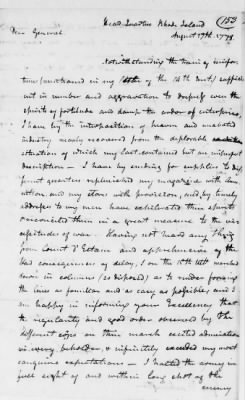 Head Quarters Rhode Island
(153
August 17th. 1778
Dear General
Notwithstanding the train of misfor-
tunes enumerated in my of the 13th Inst. suffici-
ent in number and aggravation to dispirit even the
spirits of fortitude and damp the ardor of enterprise,
I have by the interposition of heaven and unabated
industry nearly recovered from the deplorable
situation of which my last contained but an imperfect
description. I have by sending for supplies to dif-
ferent quarters replenished my magazine with amu-
nition and my store with provision, and by
address to my men have their spirits
& reconciled them in a great measure to the vi-
cissitudes of war. Having not heard any thing
from Count D'Estaing and apprehensive of the
bad consequences of delay, I on the 15th Inst marched
down in columns (so disposed) as to render forming
the lines as familiar and as easy as possible, and I
am happy in informing your Excellency that
the regularity and good order observed by the
different corps on this march excited admiration
in every beholder & infinitely exceeded my most
sanguine expectations — I halted the army in
full sight of and within long shot of the
enemy